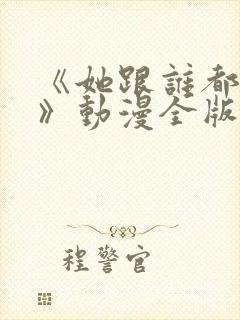 《她跟誰都
》動漫全版
程警官